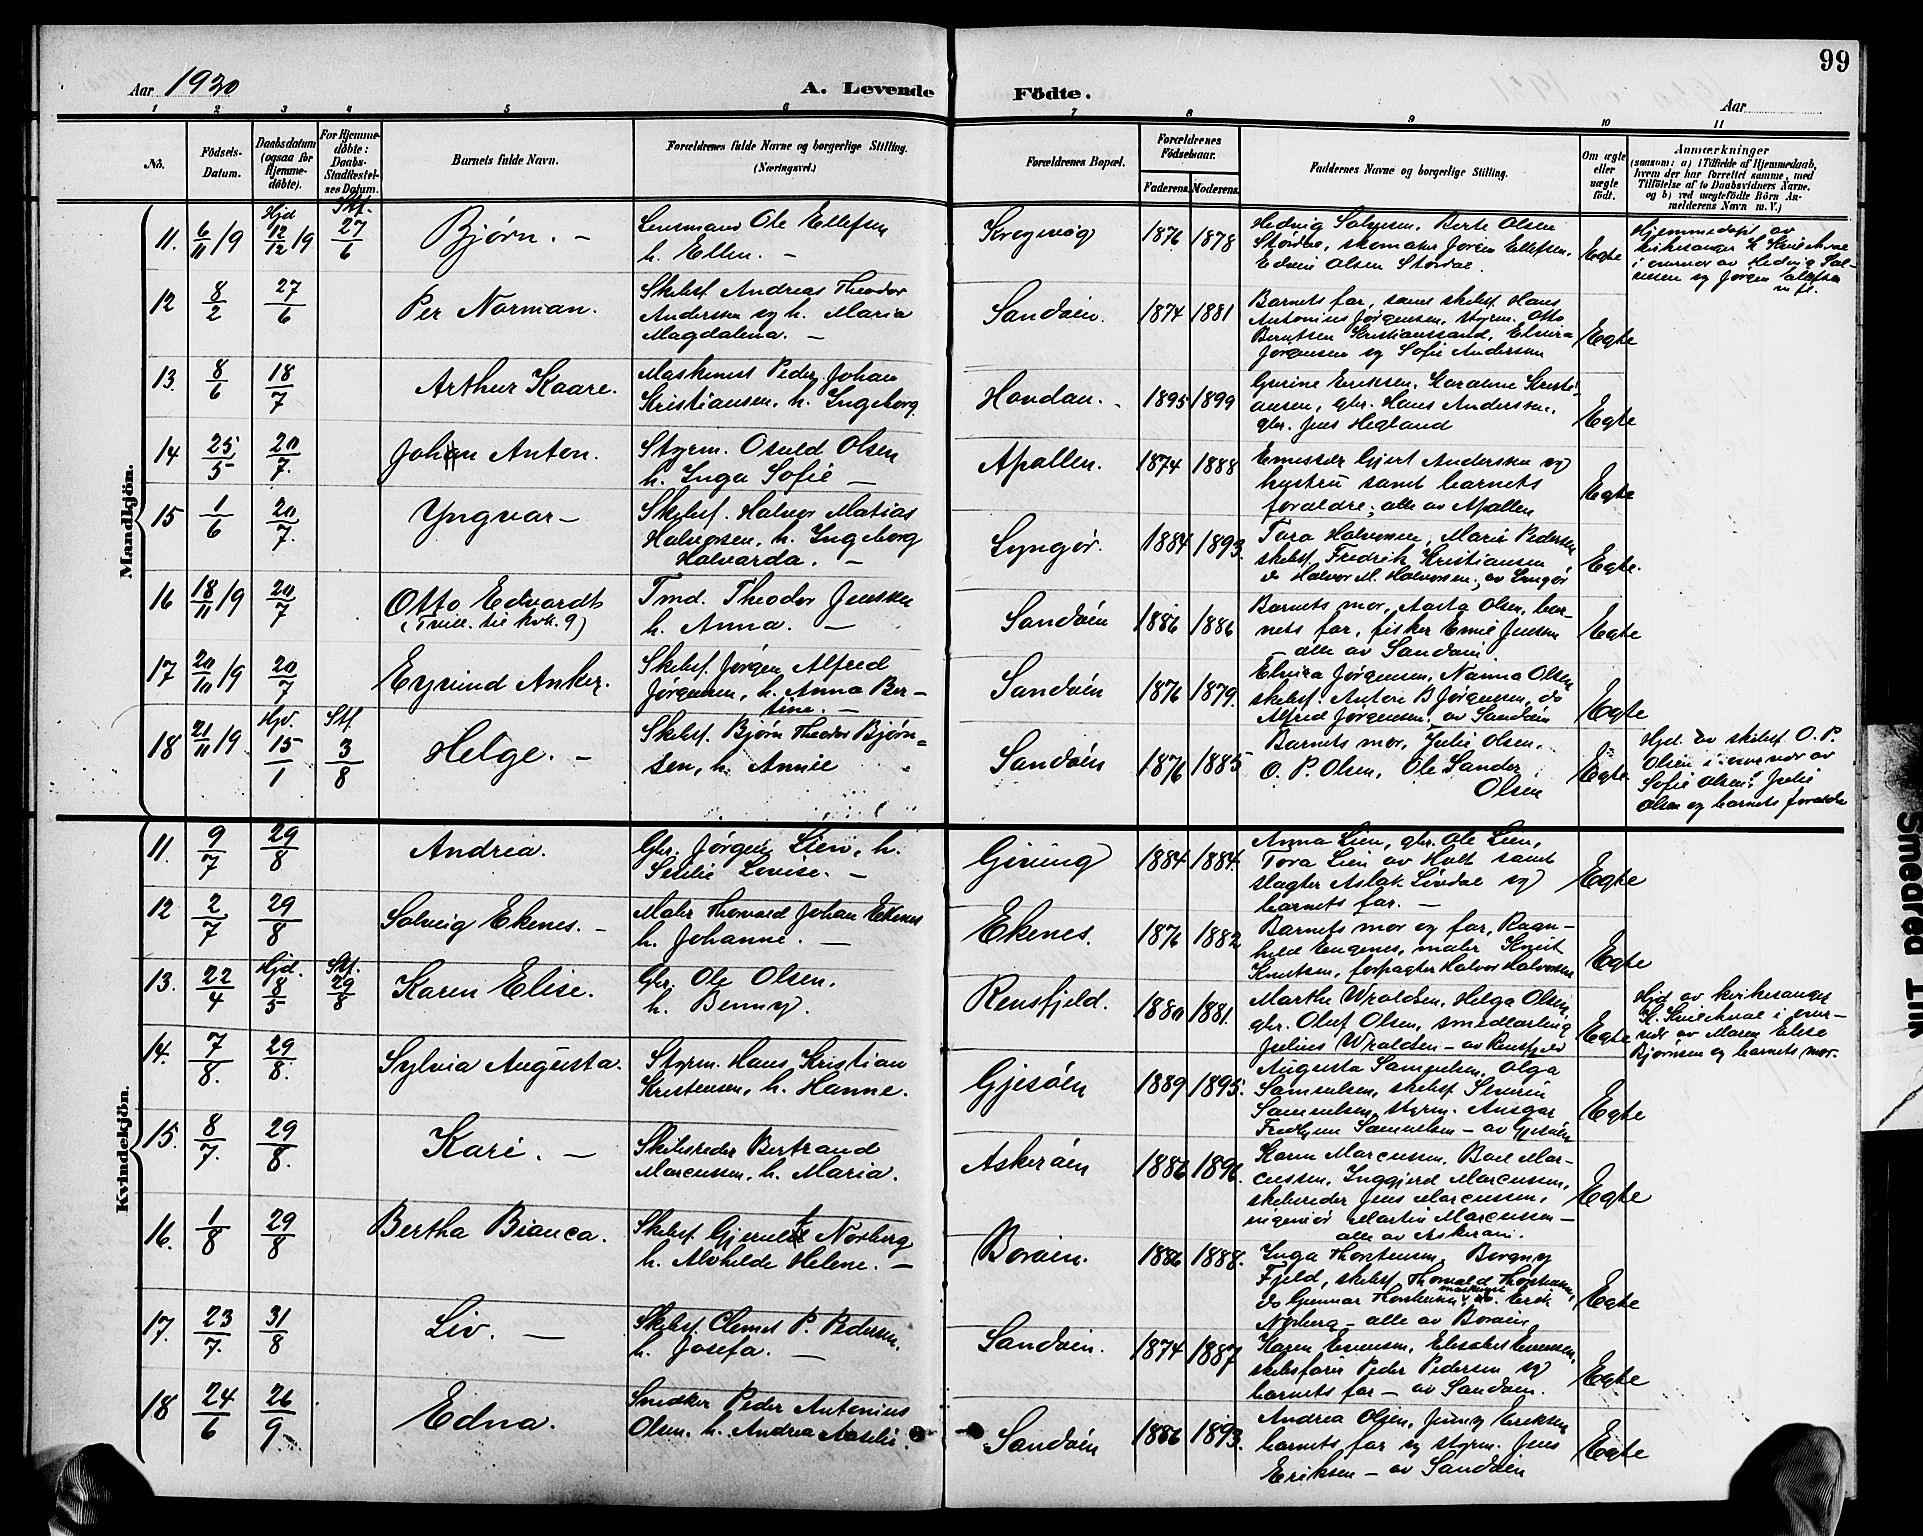 99
Aar 1920
A. Levende Födte.
Aar
1 2 3 4 5 6 7 8 9 10 11
No.
Födsels-Datum.
Daabsdatum (ogsaa for Hjemmedöbte).
For Hjemmedöbte: Daabs-Stadfæstelses Datum.
Barnets fulde Navn.
Forældrenes fulde Navne og borgerlige Stilling. (Næringsvei.)
Forældrenes Bopæl.
Forældrenes Födselsaar.
Faderens. Moderens.
Faddernes Navne og borgerlige Stilling.
Om ægte eller uægte födt.
Anmærkninger
(saasom: a) i Tilfælde af Hjemmedaab,
hvem der har forrettet samme, med
Tilföielse af to Daabsvidners Navne,
og b) ved uægtefödte Börn Anmelderens Navn m. V.)
Mandkjön.
11. 6/11 19 Hjd 12/12 19 Stf. 27/6 Bjørn. — Lensmand Ole Ellefsen
h. Ellen. —
Krogsvåg 1876 1878
Størdae, skomaker Jørgen Ellefsen,
Edvin Olsen Størdae.
Egte
12 8/2 27/6 Per Norman. Skibsf. Andreas Theodor
Andersen og h. Maria
Magdalena. —
Sandøen. 1874 1881 Barnets far, samt skibsf. Hans
Antonius Jørgensen, styrm. Otto
Berntsen Kristianssand, Elvira
Jørgensen og Sofie Andersen
Egte
13. 8/6 18/7 Arthur Kaare. Maskinist Peder Johan
Kristiansen, h. Ingeborg
Havdan. 1895 1899 Gurine Eriksen, Karoline Kristiansen, gbr. Hans Andersen,
gbr. Jens Hegland
Egte
14 25/5 20/7. Johan Anton. Styrm. Osuld Olsen
h. Inga Sofie —
Apallen. 1874 1888 Emissær Gjert Andersen og
hustru samt barnets
forældre; alle av Apallen
Egte
15 1/6 20/7. Yngvar — Skibsf. Halvor Matias
Halvorsen, h. Ingeborg
Halvarda. —
Lyngør. 1884 1893. Tora Halvorsen, Marie Pedersen
skibsf. Fredrik Kristiansen
do Halvor M. Halvorsen; av Lyngør
Egte.
16 18/11 19 20/7 Otto Edvardt
(Trill. til kvk. 9)
Tmd. Theodor Jensen
h. Anna. —
Sandøen 1886 1886 Barnets mor, Aasta Olsen, barnets far, fisker Emil Jensen
alle av Sandøen
Egte
17 20/10 19 20/7 Eyvind Anker. Skibsf. Jørgen Alfred
Jørgensen, h. Anna Bertine. —
Sandøen 1876 1879. Elvira Jørgensen, Nanna Olsen
skibsf. Anton B Jørgensen, do
Alfred Jørgensen, av Sandøen
Egte
18 21/11 19. Hjd. 15/1 Stf 3/8 Helge. — Skibsf. Bjørn Theodor Bjørnsen, h. Annie
Sandøen 1876 1885 Barnets mor, Julie Olsen,
O. P. Olsen, Ole Sander
Olsen
Egte
Hjd. av skibsf. O. P.
Olsen i overvær av
Sofie Olsen, Julie
Olsen og barnets forældre
Kvindekjön.
11. 9/7 29/8 Andrea. Gbr. Jørgen Lien, h.
Sesilie Lovise. —
Gjeving 1884 1884. Anna Lien, gbr. Ole Lien,
Tora Lien av Holt samt
slagter Aslak Lindal og
barnets far. —
Egte
12 2/7 29/8 Solveig Ekenes. — Maler Thorvald Johan Ekenes
h. Johanne. —
Ekenes. 1876 1882 Barnets mor og far, Ragnhild Engenes, maler Knut
Knutsen, forpagter Halvor Halvorsen
Egte
13. 22/4 Hjd. 8/5 Stf. 29/8 Karen Elise. Gbr. Ole Olsen,
h. Benny.
Rensfjeld. 1880 1881. Marthe Wraldsen, Helga Olsen,
gbr. Oluf Olsen, smedlærling
Julius Wraldsen — av Rensfjeld
Egte
Hjd av kirkesanger
i overvær av Maren Elise
Bjørnsen og barnets mor.
14. 7/8. 29/8. Sylvia Augusta. Styrm. Hans Kristian
Kristensen, h. Hanne.
Gjesøen 1889 1895. Augusta Samuelsen, Olga
Samuelsen, skibsf. Severin
Samuelsen, styrm. Ansgar
Samuelsen — av Gjesøen
Egte
15. 8/7. 29/8. Kari. — Skibsreder Bertrand
Marcussen, h. Maria.
Askerøen 1886 1896. Karen Marcussen, Boel Marcussen, Inggjerd Marcussen,
skibsreder Jens Marcussen,
ingeniør Martin Marcussen —
alle av Askerøen.
Egte
16. 1/8 29/8 Bertha Bianca. Skibsf. Norberg
h. Alvhilde Helene. —
Borøen. 1886 1888. Inga Thorstensen, Borgny
Fjeld, skibsf. Thorvald Thorstensen,
do Gunnar Thorstensen, maskinist Erik
Norberg — alle av Borøen
Egte
17. 23/7. 31/8 Liv. — Skibsf. Clemet P. Pedersen,
h. Josefa. —
Sandøen. 1874 1887 Karen Evensen, Elisabet Evensen,
skibsfører Peder Pedersen og
barnets far — av Sandøen.
Egte
18 24/6 26/9. Edna. Snedker Peder Antonius
Olsen, h. Andrea
Sandøen 1886 1893. Andrea Olsen, Jenny Eriksen
barnets far og styrm. Jens
Eriksen — av Sandøen
Egte
Smeared Ink